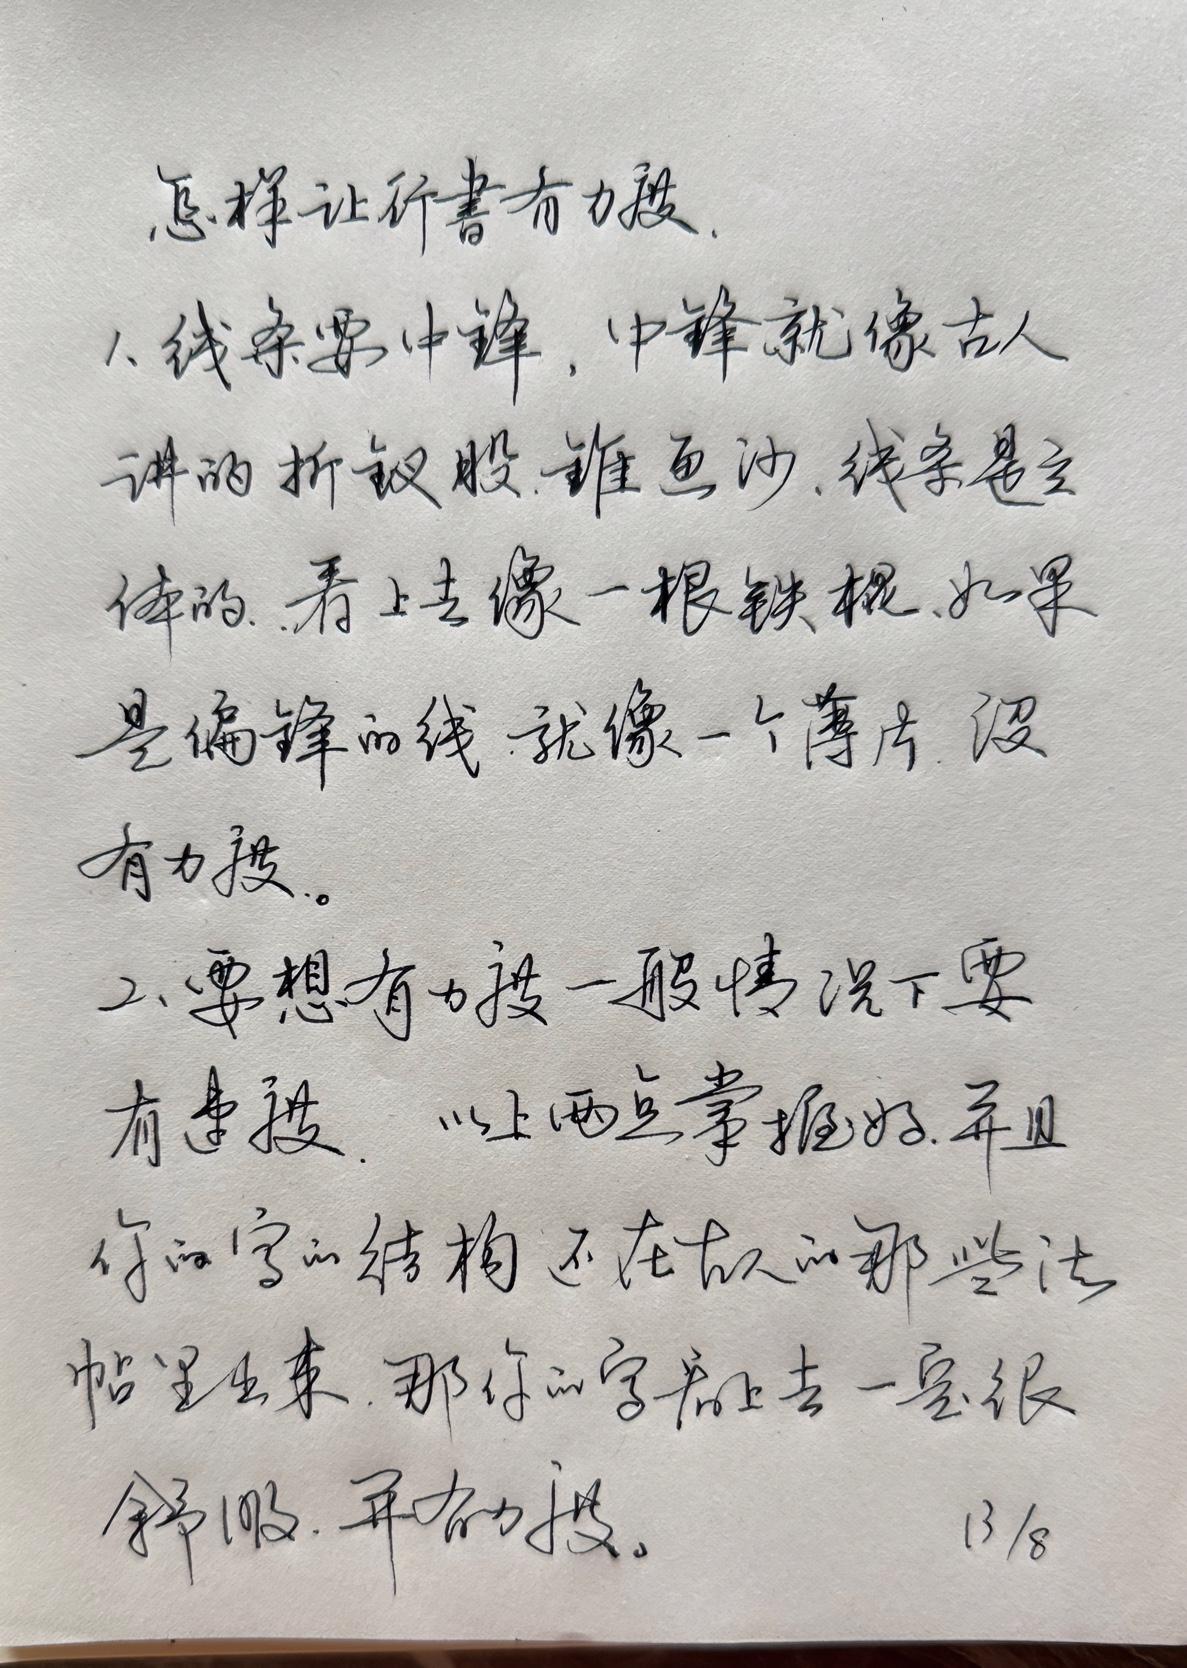 怎样让行书有力度.
1、线条要中锋，中锋就像古人
讲的折钗股、锥画沙、线条是立
体的、看上去像一根铁棍、如果
是偏锋的线、就像一个薄片、没
有力度。
2、要想有力度一般情况下要
有速度. 以上两点掌握好、并且
你的字的结构还在古人的那些法
帖里出来、那你的字看上去一定很
舒服、并有力度。 13/8